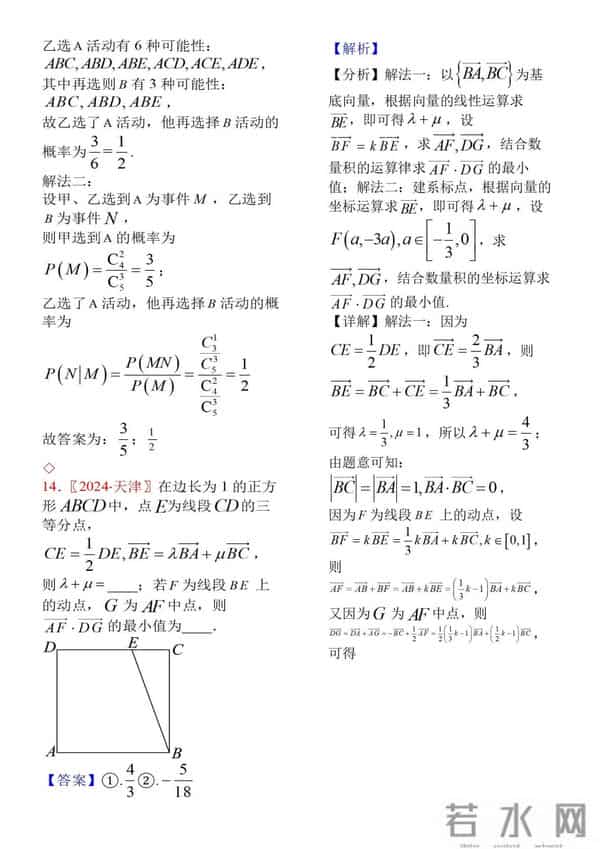 乙选A活动有6种可能性：
ABC, ABD, ABE, ACD, ACE, ADE，
其中再选则B有3种可能性：
ABC, ABD, ABE，
故乙选了A活动，他再选择B活动的
概率为 3/6 = 1/2.
解法二：
设甲、乙选到A为事件M，乙选到
B为事件N，
则甲选到A的概率为
P(M) = C₄²/C₅³ = 3/5；
乙选了A活动，他再选择B活动的概
率为
P(N|M) = P(MN)/P(M) = (C₃¹/C₅³)/(C₄²/C₅³) = 1/2
故答案为：3/5；1/2
◇
14.〖2024·天津〗在边长为1的正方
形ABCD中，点E为线段CD的三
等分点，
CE = 1/2 DE, BE→ = λBA→ + μBC→，
则λ+μ=____；若F为线段BE上
的动点，G为AF中点，则
AF→ · DG→ 的最小值为____.
D E C
A B
【答案】①. 4/3 ②. −5/18
【解析】
【分析】解法一：以{BA→, BC→}为基
底向量，根据向量的线性运算求
BE→，即可得λ+μ，设
BF→ = k BE→，求AF→, DG→，结合数
量积的运算律求AF→ · DG→的最小
值；解法二：建系标点，根据向量的
坐标运算求BE→，即可得λ+μ，设
F(a,−3a), a∈[−1/3, 0]，求
AF→, DG→，结合数量积的坐标运算求
AF→ · DG→的最小值.
【详解】解法一：因为
CE = 1/2 DE，即CE→ = 2/3 BA→，则
BE→ = BC→ + CE→ = 1/3 BA→ + BC→，
可得λ = 1/3, μ = 1，所以λ+μ = 4/3；
由题意可知：
|BC→| = |BA→| = 1, BA→ · BC→ = 0，
因为F为线段BE上的动点，设
BF→ = kBE→ = 1/3 kBA→ + kBC→, k∈[0,1]，
则
AF→ = AB→ + BF→ = AB→ + kBE→ = (1/3 k − 1)BA→ + kBC→，
又因为G为AF中点，则
DG→ = DA→ + AG→ = −BC→ + 1/2 AF→ = 1/2(1/3 k − 1)BA→ + (1/2 k − 1)BC→，
可得
若水网